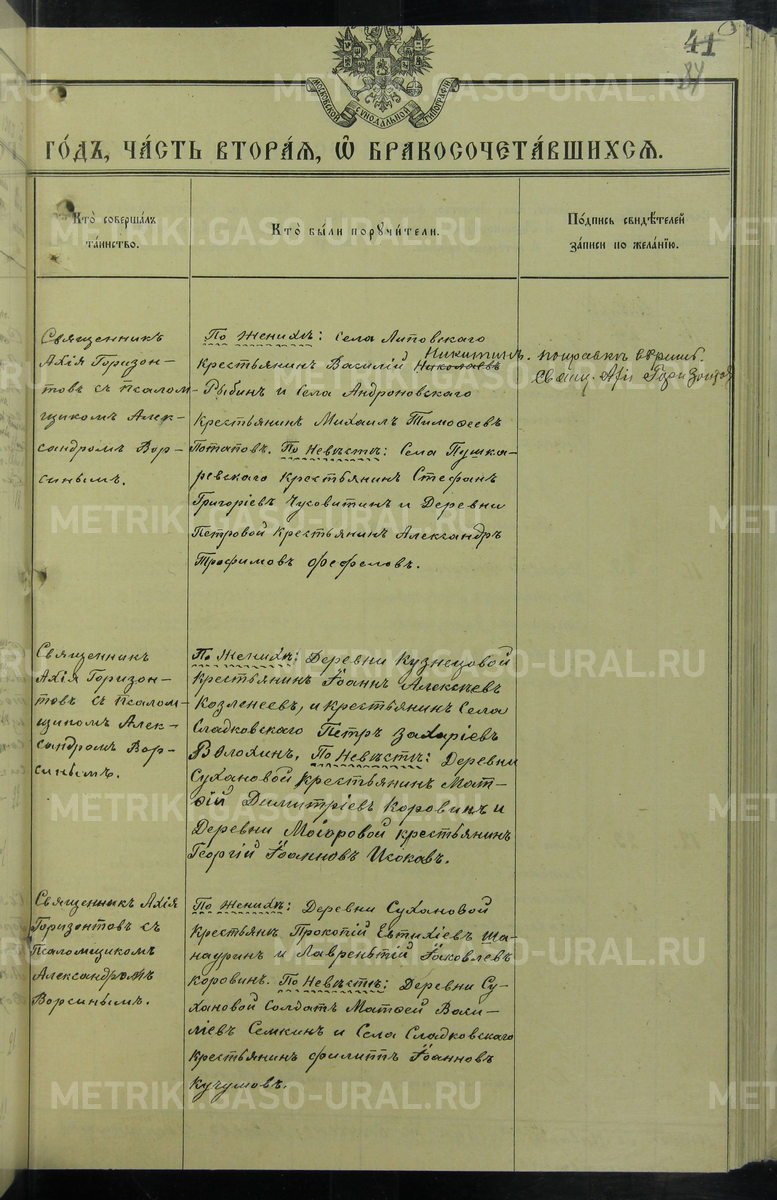 41
84
МОСКОВСКОЙ СѴНОДАЛЬНОЙ ТИПОГРАФІИ
ГО́ДЪ, ЧА́СТЬ ВТОРА́Ѧ, Ѡ҆ БРАКОСОЧЕТА́ВШИХСѦ.
Кто̀ соверша́лъ
та́инство.
Кто̀ бы́ли порꙋчи́тели.
По́дпись свидѣ́телей
за́писи по жела́нїю.
Священникъ
Ахія Горизон-
товъ съ псалом-
щикомъ Алек-
сандромъ Вор-
синымъ.
По Женихѣ: Села Липовскаго
крестьянинъ Василій Николаевъ Никитинъ.
Рыбинъ и Села Андроновскаго
крестьянинъ Михаилъ Тимофеевъ
Потаповъ. По Невѣстѣ: Села Пушка-
ревскаго крестьянинъ Стефанъ
Григоріевъ Чусовитинъ и Деревни
Петровой крестьянинъ Александръ
Трофимовъ Фефеловъ.
поправкѣ вѣрить.
Свящ. Горизонтовъ
Священникъ
Ахія Горизон-
товъ съ псалом-
щикомъ Алек-
сандромъ Вор-
синымъ.
По Женихѣ: Деревни Кузнецовой
крестьянинъ Іоаннъ Алексѣевъ
Козленеевъ, и крестьянинъ Села
Сладковскаго Петръ Захаріевъ
Волохинъ, По Невѣстѣ: Деревни
Сухановой крестьянинъ Мат-
ѳій Димитріевъ Коровинъ и
Деревни крестьянинъ
Георгій Іоанновъ
Священникъ Ахія
Горизонтовъ съ
Псаломщикомъ
Александромъ
Ворсинымъ.
По Женихѣ: Деревни Сухановой
крестьянъ Прокопій Евтихіевъ Ша-
науринъ и Лаврентій Іаковлевъ
Коровинъ. По Невѣстѣ: Деревни Су-
хановой солдатъ Матѳей Васи-
ліевъ Семкинъ и Села Сладковскаго
крестьянинъ Филиппъ Іоанновъ
Кучумовъ.
METRIKI.GASO-URAL.RU